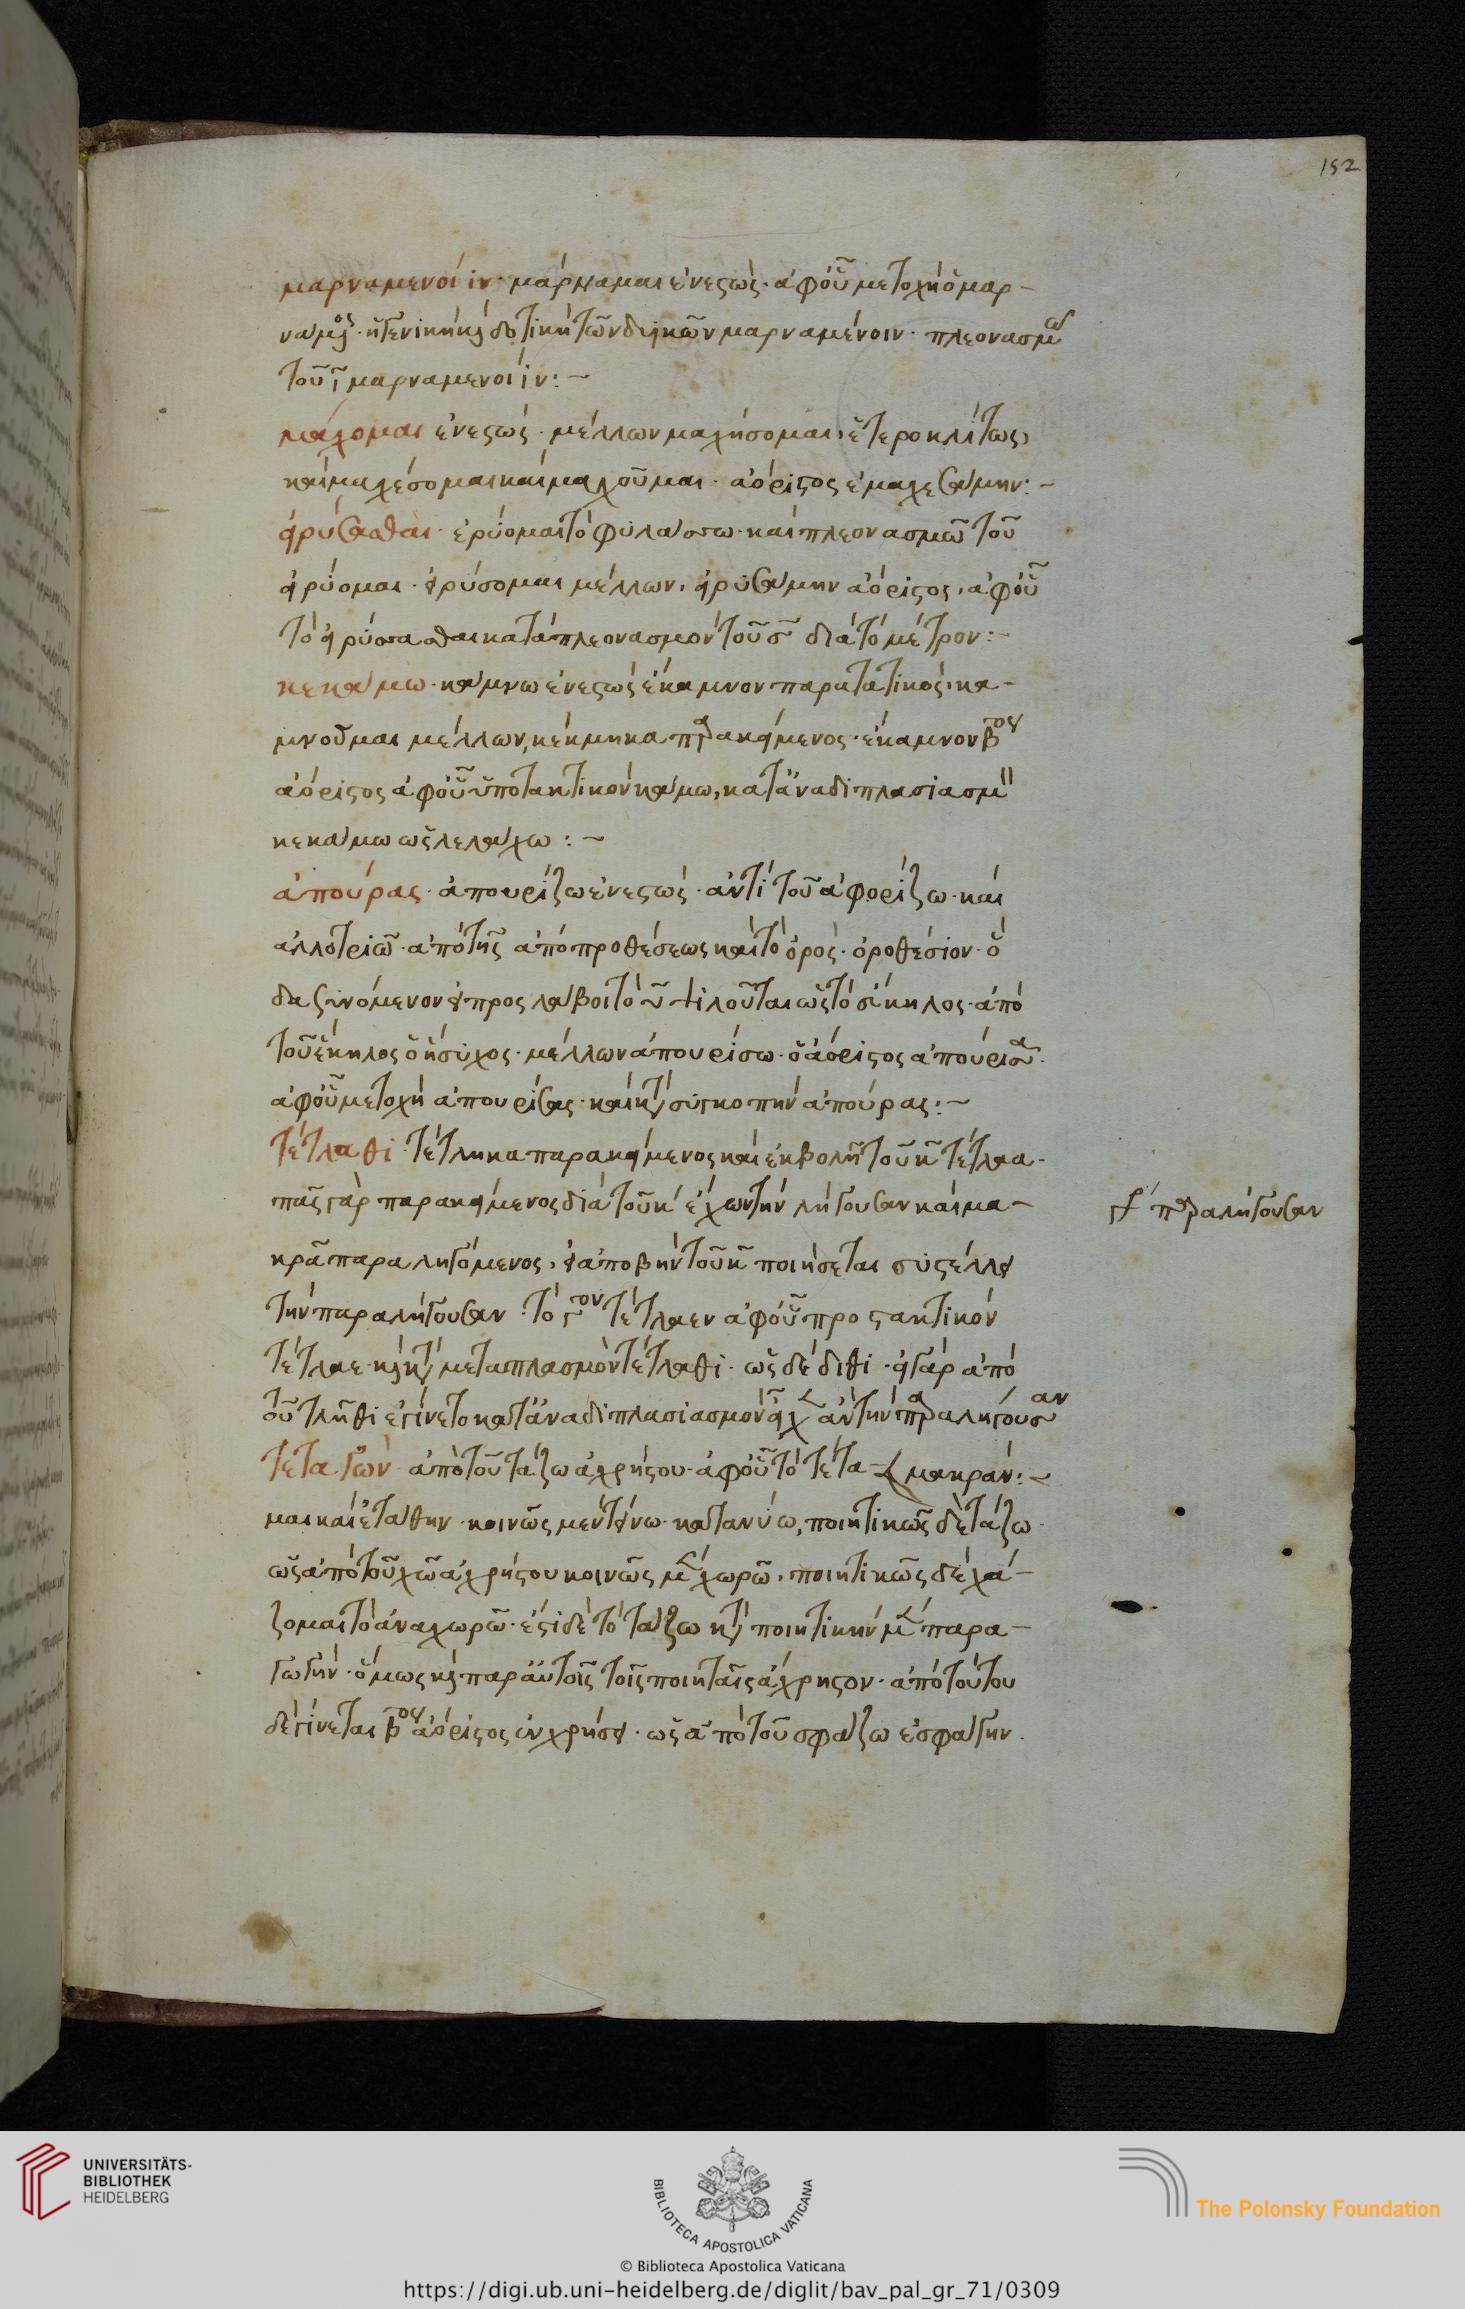 152
μαρναμενοίιν· μάρναμαι ἐνεστώς· ἀφ' οὗ μετοχὴ ὁ μαρ-
νάμενος· ἡ γενικὴ καὶ δοτικὴ τῶν δυϊκῶν μαρναμένοιν· πλεονασμῶ
τοῦ ι μαρναμενοίιν:~
μάχομαι ἐνεστώς· μέλλων μαχήσομαι, ἑτεροκλίτως,
καὶ μαχέσομαι καὶ μαχοῦμαι· ἀόριστος ἐμαχεσάμην:~
εἰρύσασθαι· ἐρύομαι τὸ φυλάσσω· καὶ πλεονασμῶ τοῦ
εἰρύομαι· εἰρύσομαι μέλλων, εἰρυσάμην ἀόριστος, ἀφ' οὗ
τὸ εἰρύσσασθαι κατὰ πλεονασμὸν τοῦ σ διὰ τὸ μέτρον:~
κεκάμω· κάμνω ἐνεστώς ἔκαμνον παρατατικός, κα-
μνοῦμαι μέλλων, κέκμηκα παρακείμενος· ἔκαμνον βος
ἀόριστος ἀφ' οὗ ὑποτακτικὸν κάμω, κατὰ ἀναδιπλασιασμὸν
κεκάμω ὡς λελάχω:~
ἀπούρας· ἀπουρίζω ἐνεστώς· ἀντὶ τοῦ ἀφορίζω· καὶ
ἀλλοτριῶ· ἀπὸ τῆς ἀπὸ προθέσεως καὶ τὸ ὅρος· ὁροθέσιον· ὃ
δασυνόμενον εἰ προσλάβοι τὸ υ ψιλοῦται ὡς τὸ εὔκηλος· ἀπὸ
τοῦ ἕκηλος ὁ ἥσυχος· μέλλων ἀπουρίσω· ὁ ἀόριστος ἀπούρισα·
ἀφ' οὗ μετοχὴ ἀπουρίσας· καὶ κατὰ συγκοπὴν ἀπούρας:~
τέτλαθι· τέτληκα παρακείμενος καὶ ἐκβολῆ τοῦ κ τέτλαα·
πᾶς γὰρ παρακείμενος διὰ τοῦ κ ἔχων τὴν λήγουσαν καὶ μα-
κρᾶ παραληγόμενος, εἰ ἀποβολὴν τοῦ κ ποιήσεται συστέλλει
τὴν παραλήγουσαν· τὸ γον τέτλαεν ἀφ' οὗ προστακτικὸν
τέτλαε· καὶ κατὰ μεταπλασμὸν τέτλαθι· ὡς δέδιθι· εἰ γὰρ ἀπὸ
τοῦ τλῆθι ἐγίνετο κατὰ ἀναδιπλασιασμὸν εἶχεν ἂν τὴν παραλήγουσαν
τεταγών· ἀπὸ τοῦ τάζω ἀχρήστου· ἀφ' οὗ τὸ τέτα- μακράν:~
μαι καὶ ἐτάθην· κοινῶς μὲν τείνω· καὶ τανύω, ποιητικῶς δὲ τάζω·
ὡς ἀπὸ τοῦ χῶ ἀχρήστου κοινῶς μὲν χωρῶ, ποιητικῶς δὲ χά-
ζομαι τὸ ἀναχωρῶ· ἔστι δὲ τὸ τάζω κατὰ ποιητικὴν μὲν παρα-
γωγήν· ὅμως καὶ παρ' αὐτοῖς τοῖς ποιηταῖς ἄχρηστον· ἀπὸ τούτου
δὲ γίνεται βος ἀόριστος ἐν χρήσει· ὡς ἀπὸ τοῦ σφάζω ἐσφάγην.
παραλήγουσαν
UNIVERSITÄTS-
BIBLIOTHEK
HEIDELBERG
BIBLIOTECA APOSTOLICA VATICANA
The Polonsky Foundation
© Biblioteca Apostolica Vaticana
https://digi.ub.uni-heidelberg.de/diglit/bav_pal_gr_71/0309